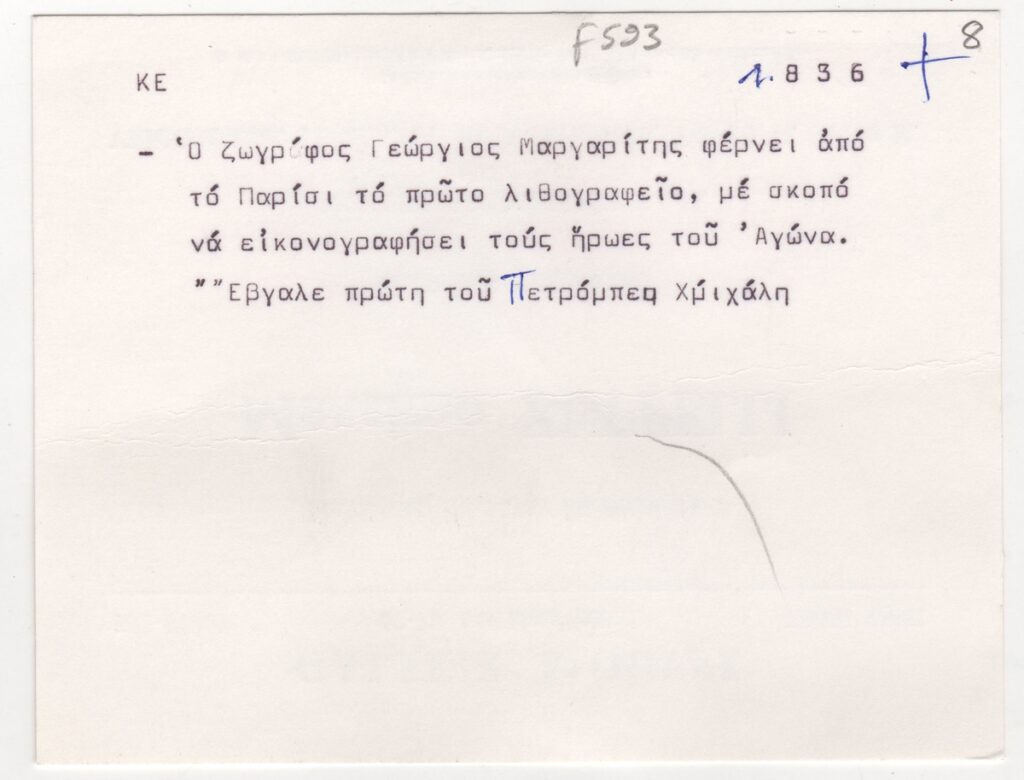 F593
8
1.836
ΚΕ
- Ὁ ζωγράφος Γεώργιος Μαργαρίτης φέρνει ἀπό
τό Παρίσι τό πρῶτο λιθογραφεῖο, μέ σκοπό
νά εἰκονογραφήσει τούς ἥρωες τοῦ Ἀγώνα.
"Ἔβγαλε πρώτη τοῦ Πετρόμπεη Χμιχάλη